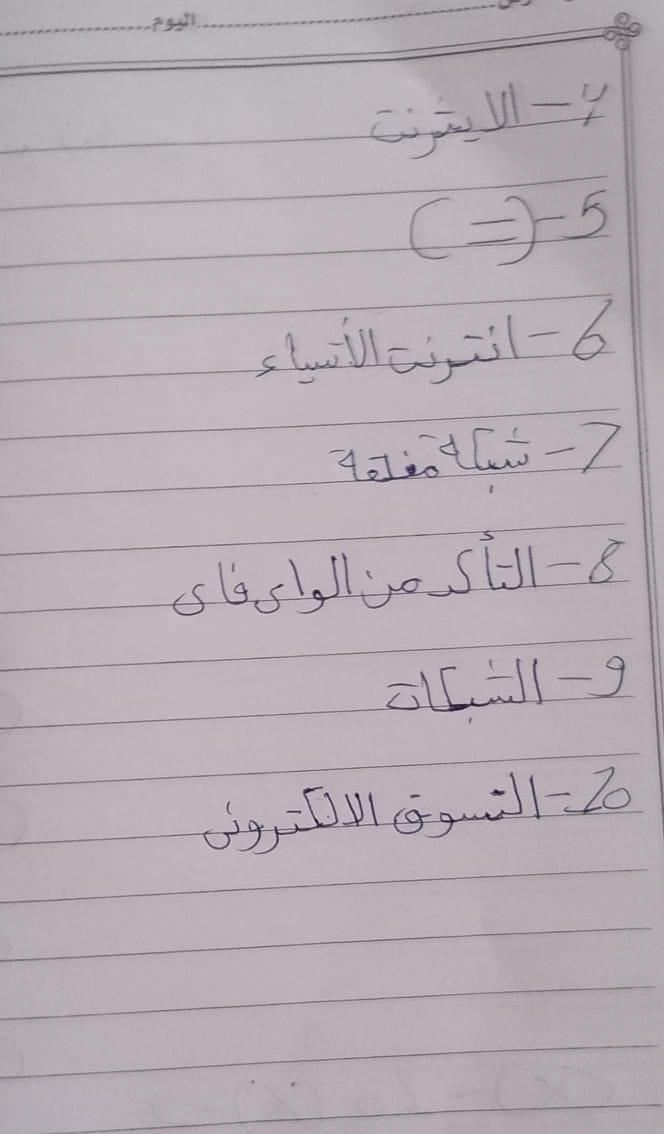 اليوم
4- الايثرنت
5- (=)
6- انترنت الأشياء
7- شبكة مغلقة
8- التأكد من الواى فاى
9- الشبكات
10- التسوق الالكترونى